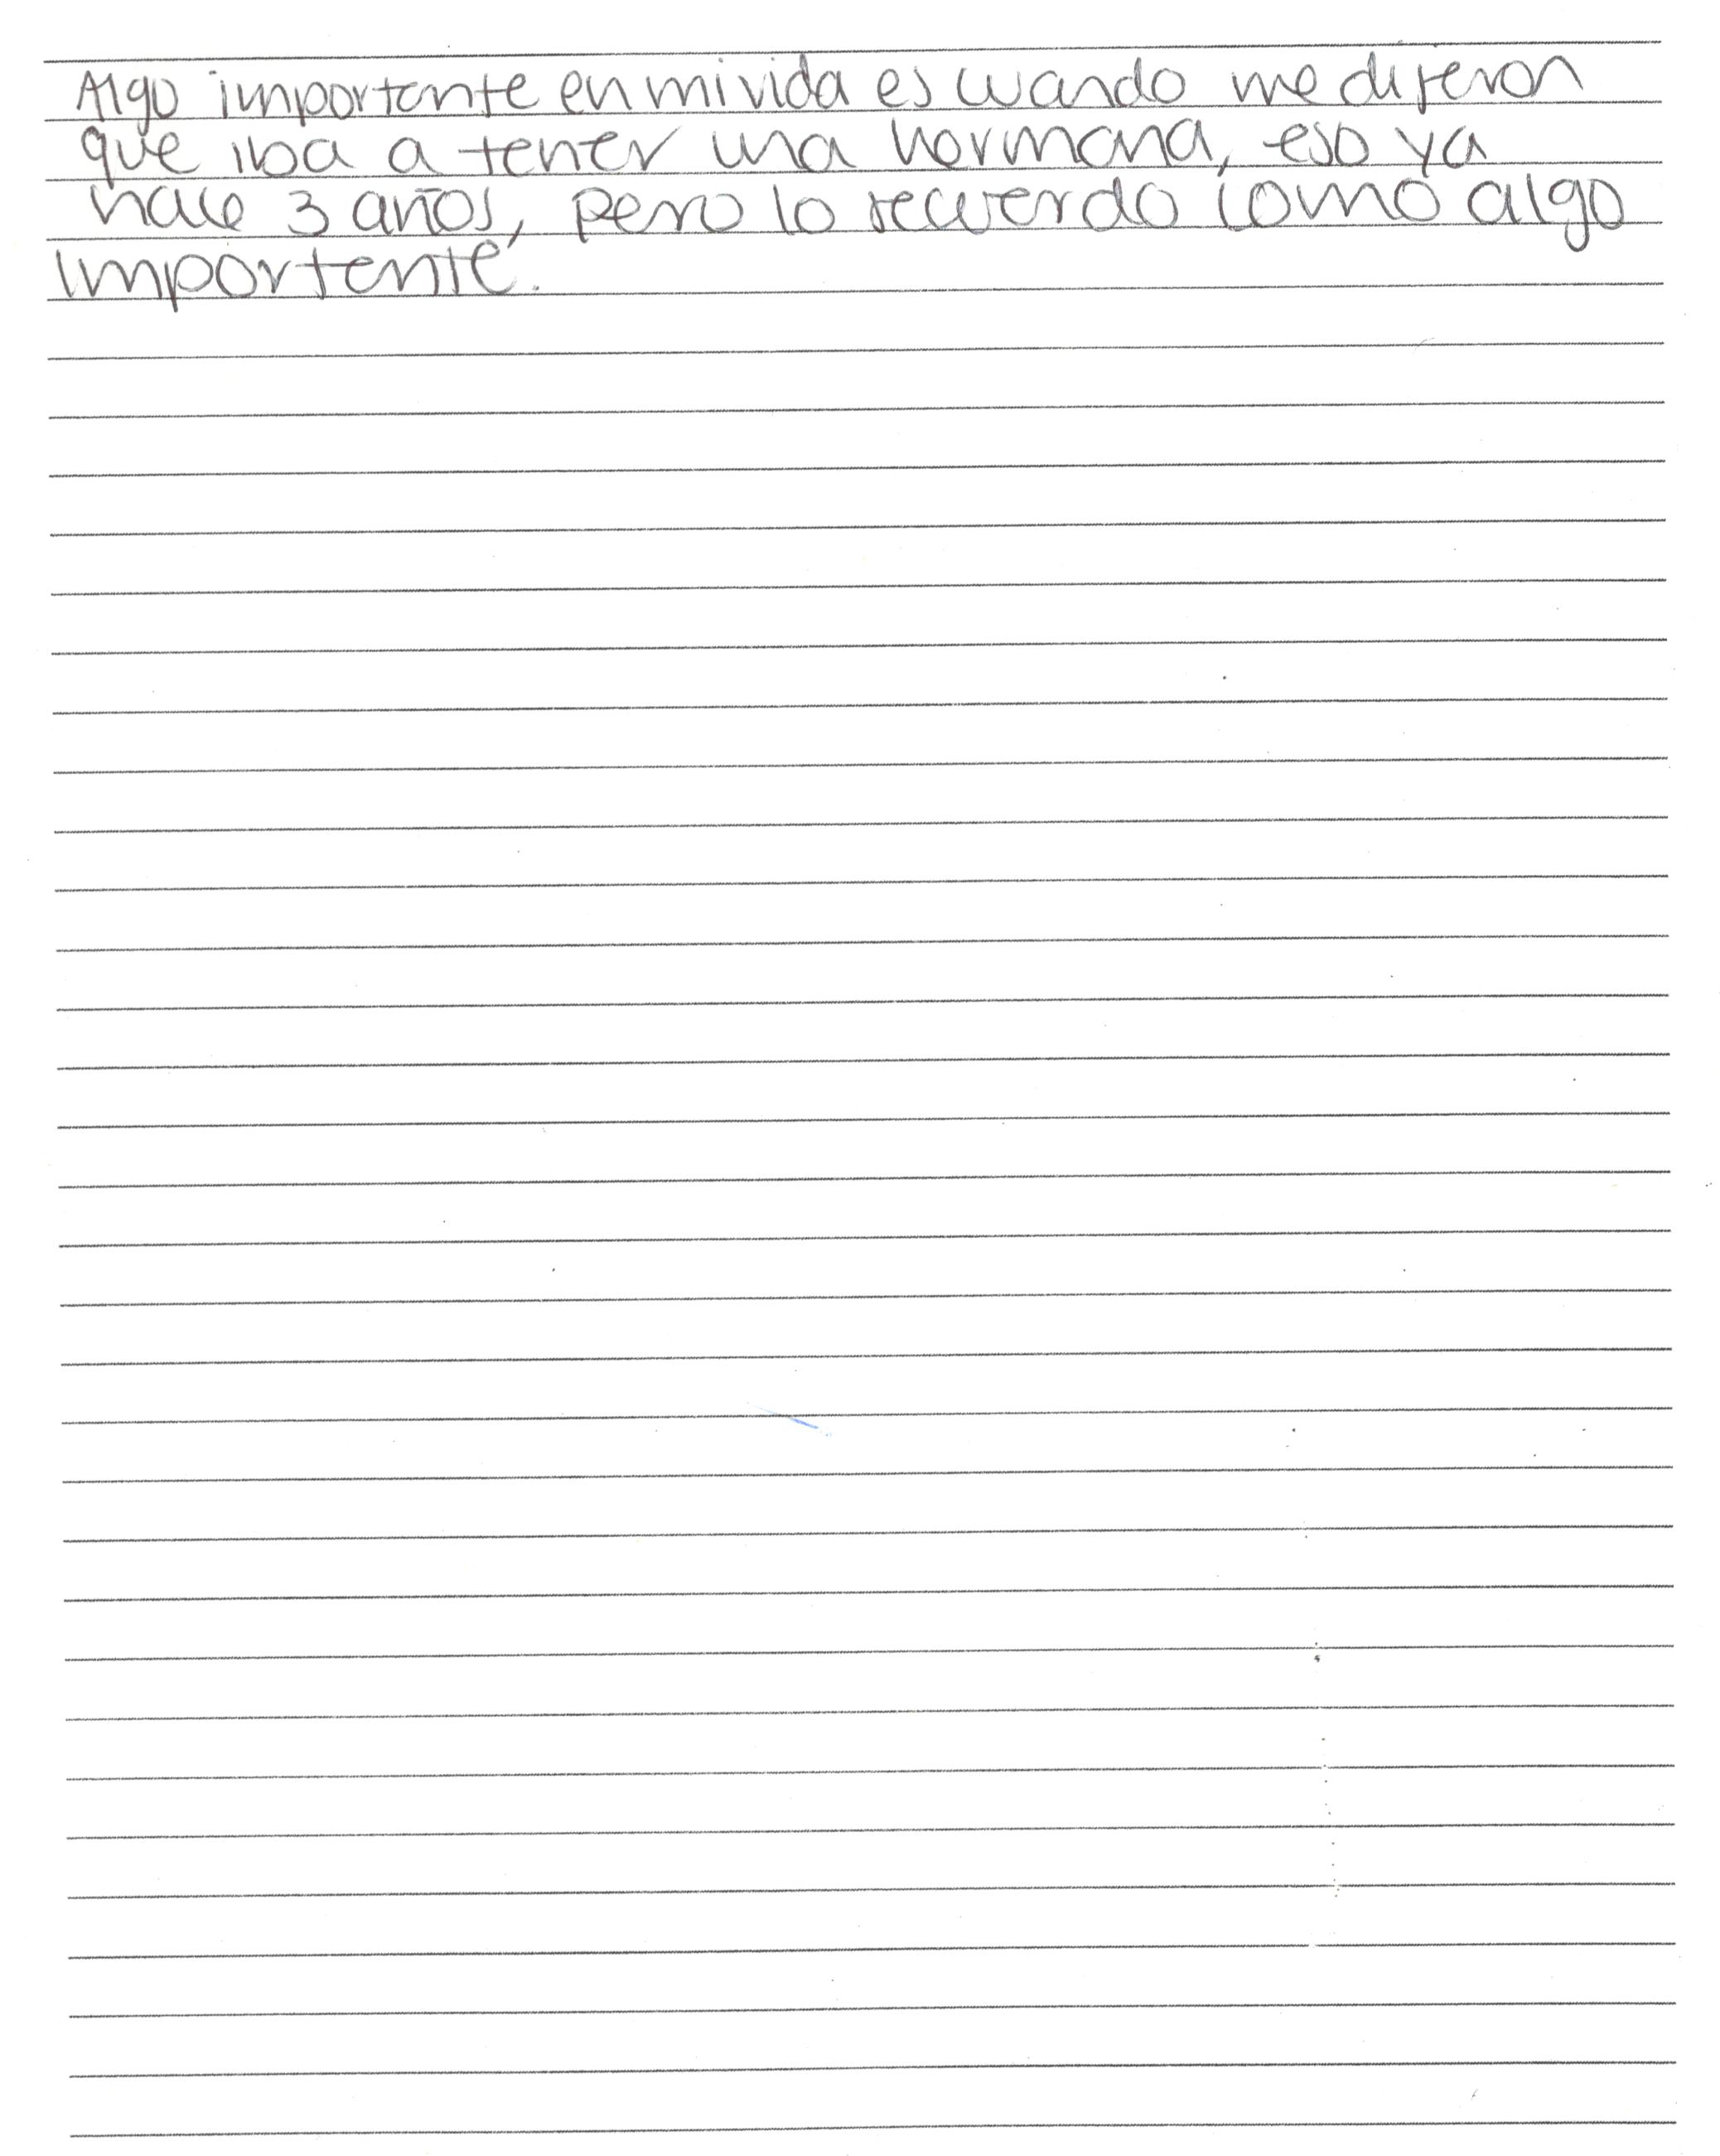 Algo importante en mi vida es cuando me dijeron
que iba a tener una hermana, eso ya
hace 3 años, pero lo recuerdo como algo
importante.